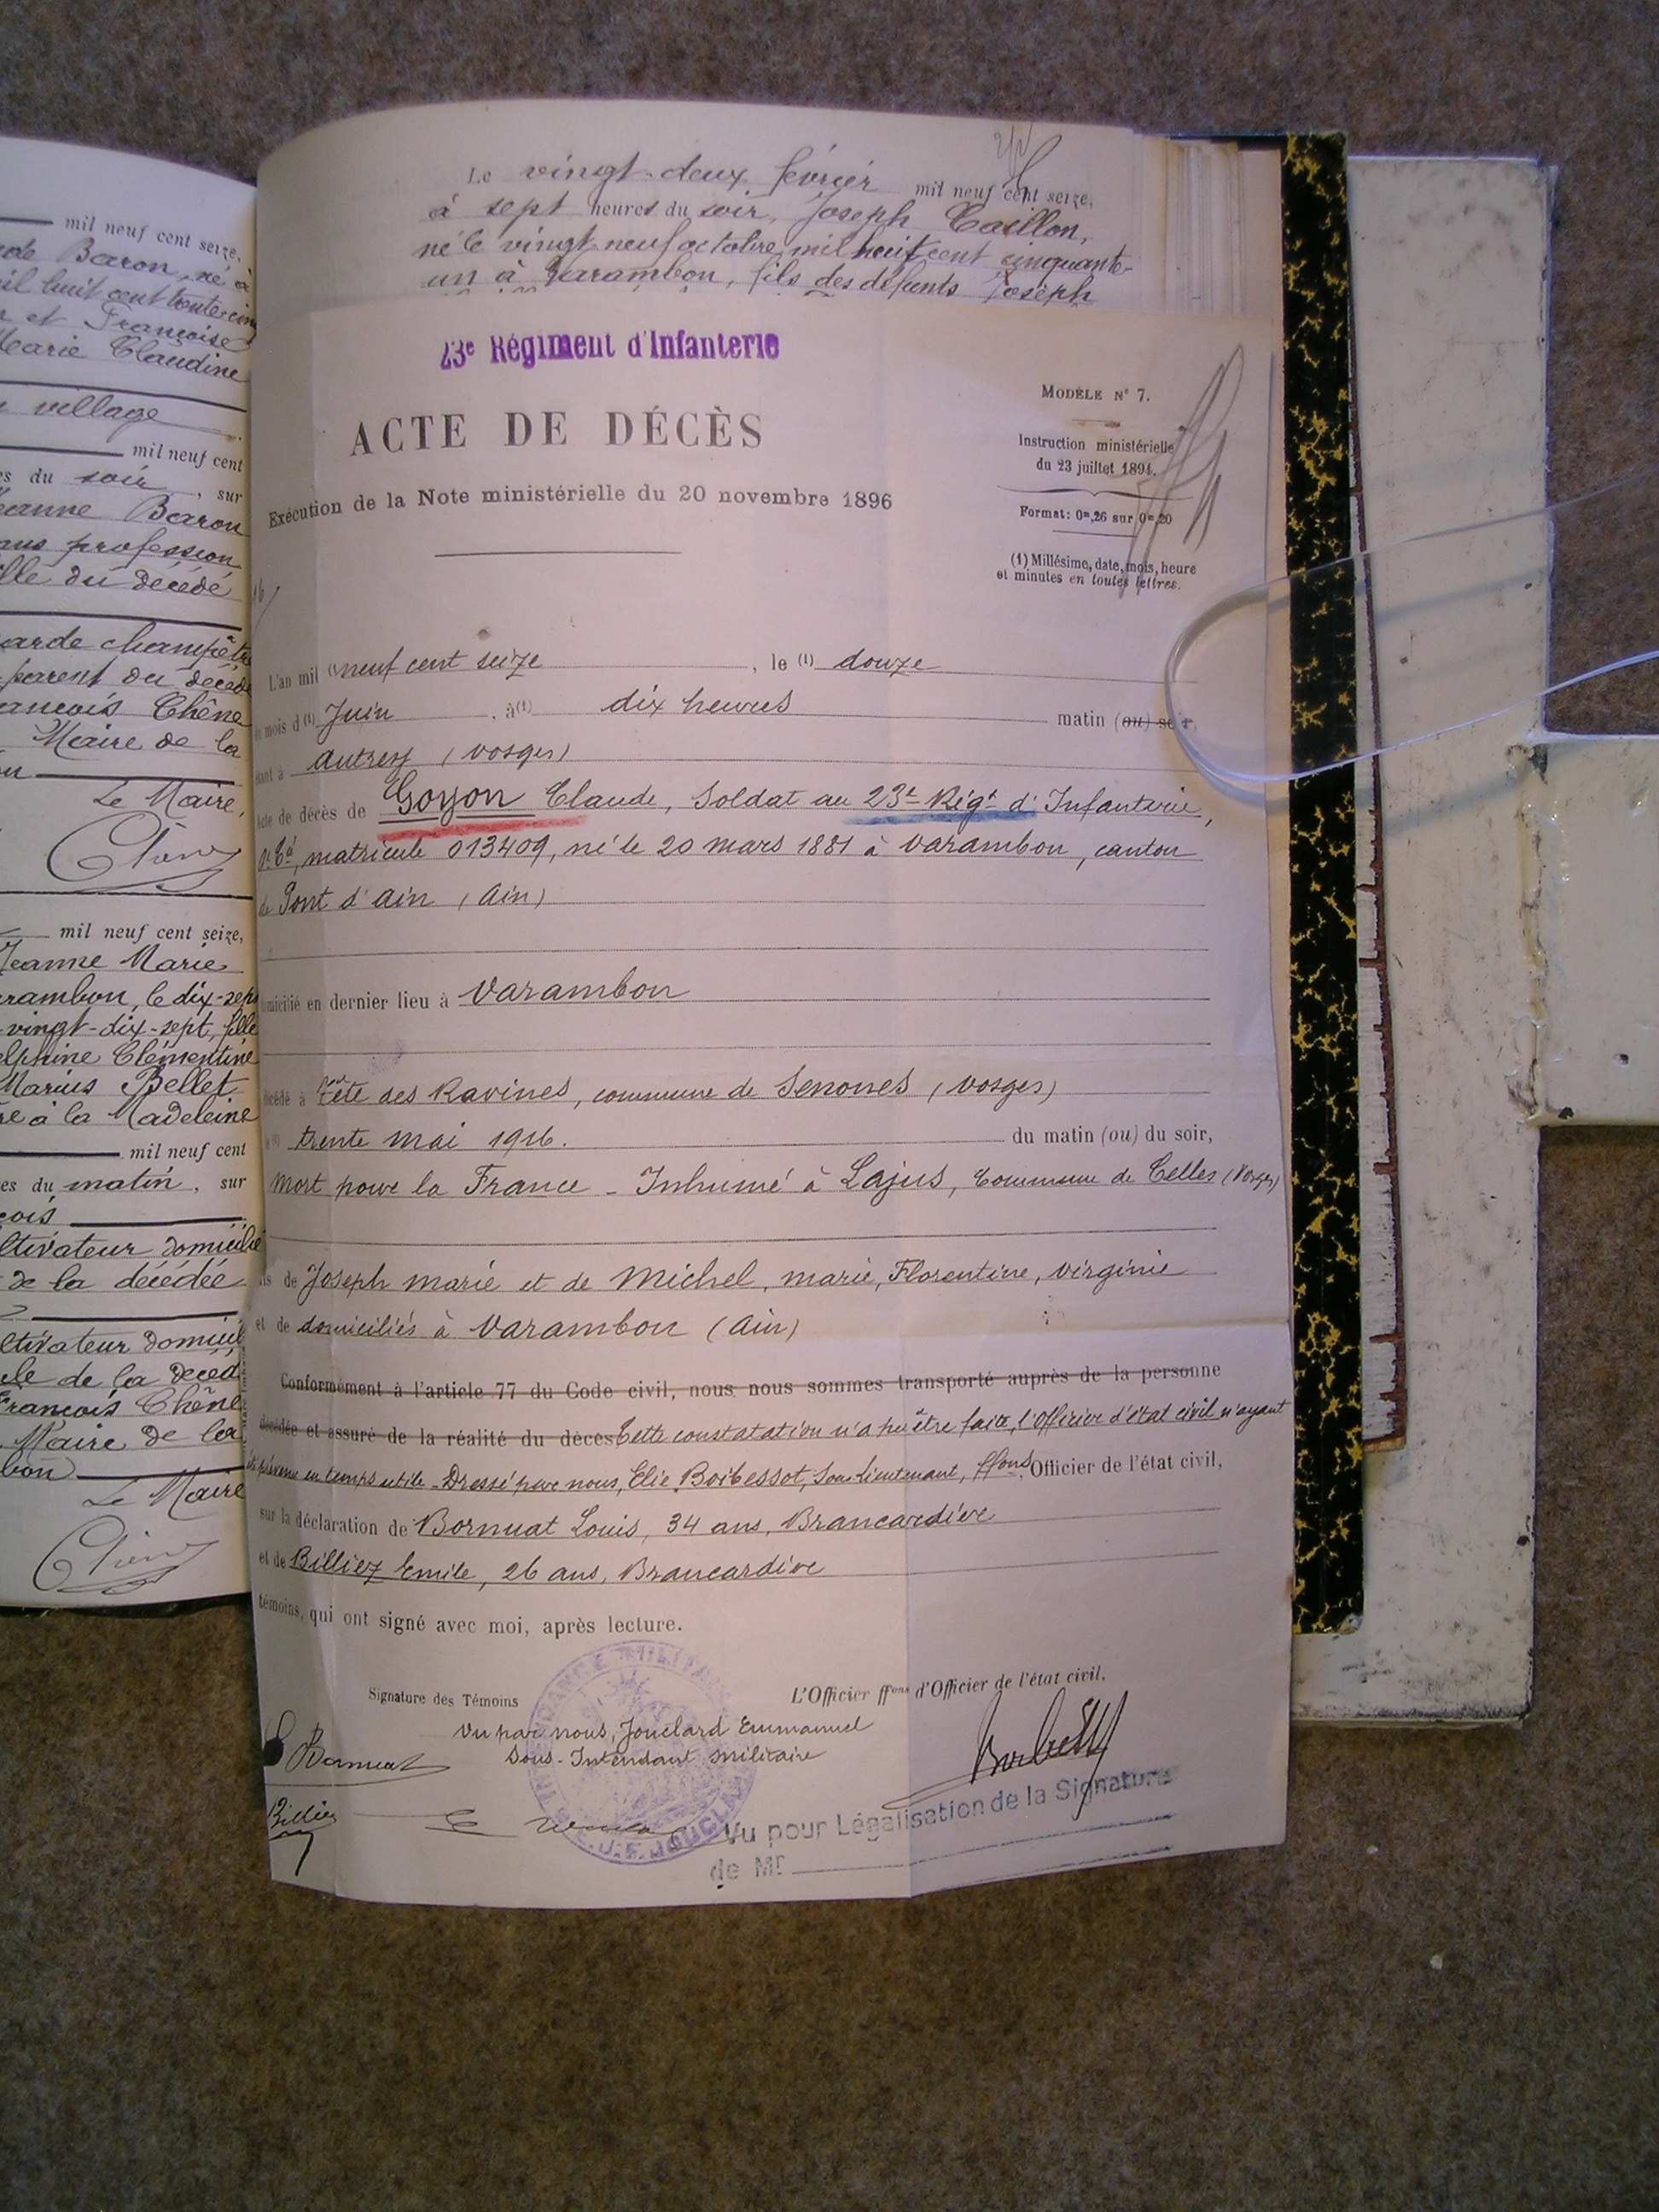 mil neuf cent seize,
de Baron, né à
il huit cent trente-cinq
et Françoise
Marie Claudine
village
mil neuf cent
es du soir, sur
eanne Baron
ans profession
lle du décédé
arde champêtre
parent du décédé
ançois Chêne
Maire de la
Le Maire,
Chêne
mil neuf cent seize,
Jeanne Marie
rambon, le dix-sept
vingt-dix-sept, fille
elphine Clémentine
Marius Bellet
re à la Madeleine
mil neuf cent
es du matin, sur
çois
ltivateur domicilié
de la décédée
ltivateur domicil
le de la décéd
François Chêne
Maire de la
bon
Le Maire
Chêne
Le vingt-deux février mil neuf cent seize,
à sept heures du soir, Joseph Caillon,
né le vingt-neuf octobre mil huit cent cinquante-
un à Varambon, fils des défunts Joseph
23e Régiment d'Infanterie
MODÈLE N° 7.
ACTE DE DÉCÈS
Instruction ministérielle
du 23 juillet 1894.
Exécution de la Note ministérielle du 20 novembre 1896
Format: 0m,26 sur 0m,20
(1) Millésime, date, mois, heure
et minutes en toutes lettres.
L'an mil neuf cent seize, le (1) douze
mois d (1) Juin, à (1) dix heures matin (ou) soir,
étant à Autrey (Vosges)
Acte de décès de Goyon Claude, Soldat au 23e Régt d'Infanterie,
Cie, matricule 013409, né le 20 mars 1881 à Varambon, canton
de Pont d'Ain (Ain)
domicilié en dernier lieu à Varambon
décédé à Tête des Ravines, commune de Senones (Vosges)
trente mai 1916. du matin (ou) du soir,
Mort pour la France - Inhumé à Lajus, Commune de Celles (Vosges)
fils de Joseph Marie et de Michel, Marie, Florentine, Virginie
et de domiciliés à Varambon (Ain)
Conformément à l'article 77 du Code civil, nous nous sommes transporté auprès de la personne
décédée et assuré de la réalité du décès Cette constatation n'a pu être faite, l'Officier d'état civil n'ayant
été prévenu en temps utile - Dressé par nous, Elie Boibessot, Sous-lieutenant, ffons, Officier de l'état civil,
sur la déclaration de Bornuat Louis, 34 ans, Brancardier
et de Billiez Emile, 26 ans, Brancardier
témoins, qui ont signé avec moi, après lecture.
Signature des Témoins
L'Officier ffons d'Officier de l'état civil,
Vu par nous, Jouclard Emmanuel
Sous-Intendant Militaire
Bornuat
Billiez
Vu pour Légalisation de la Signature
de Mr